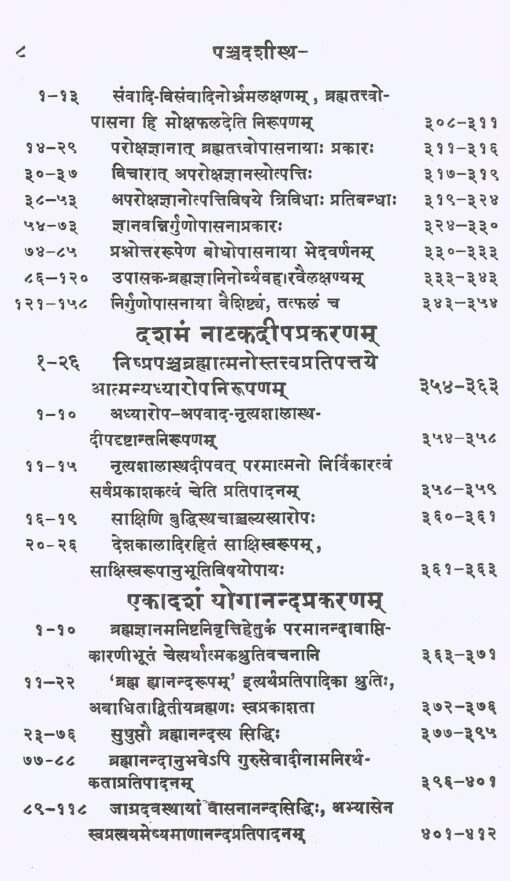 ८ पञ्चदशीस्थ–
१–१३ संवादि-विसंवादिनोर्भ्रमलक्षणम्, ब्रह्मतत्त्वो-
पासना हि मोक्षफलदेति निरूपणम् ३०८–३११
१४–२९ परोक्षज्ञानात् ब्रह्मतत्त्वोपासनायाः प्रकारः ३११–३१६
३०–३७ विचारात् अपरोक्षज्ञानस्योत्पत्तिः ३१७–३१९
३८–५३ अपरोक्षज्ञानोत्पत्तिविषये त्रिविधाः प्रतिबन्धाः ३१९–३२४
५४–७३ ज्ञानवन्निर्गुणोपासनाप्रकारः ३२४–३३०
७४–८५ प्रश्नोत्तररूपेण बोधोपासनाया भेदवर्णनम् ३३०–३३३
८६–१२० उपासक-ब्रह्मज्ञानिनोर्व्यवहारवैलक्षण्यम् ३३३–३४३
१२१–१५८ निर्गुणोपासनाया वैशिष्ट्यं, तत्फलं च ३४३–३५४
दशमं नाटकदीपप्रकरणम्
१–२६ निष्प्रपञ्चब्रह्मात्मनोस्तत्त्वप्रतिपत्तये
आत्मन्यध्यारोपनिरूपणम् ३५४–३६३
१–१० अध्यारोप–अपवाद-नृत्यशालास्थ-
दीपदृष्टान्तनिरूपणम् ३५४–३५८
११–१५ नृत्यशालास्थदीपवत् परमात्मनो निर्विकारत्वं
सर्वप्रकाशकत्वं चेति प्रतिपादनम् ३५८–३५९
१६–१९ साक्षिणि बुद्धिस्थचाञ्चल्यस्यारोपः ३६०–३६१
२०-२६ देशकालादिरहितं साक्षिस्वरूपम्,
साक्षिस्वरूपानुभूतिविषयोपायः ३६१–३६३
एकादशं योगानन्दप्रकरणम्
१–१० ब्रह्मज्ञानमनिष्टनिवृत्तिहेतुकं परमानन्दावाप्ति-
कारणीभूतं चेत्यर्थात्मकश्रुतिवचनानि ३६३–३७१
११–२२ ‘ब्रह्म ह्यानन्दरूपम्’ इत्यर्थप्रतिपादिका श्रुतिः,
अबाधिताद्वितीयब्रह्मणः स्वप्रकाशता ३७२–३७६
२३–७६ सुषुप्तौ ब्रह्मानन्दस्य सिद्धिः ३७७–३९५
७७-८८ ब्रह्मानन्दानुभवेऽपि गुरुसेवादीनामनिरर्थ-
कताप्रतिपादनम् ३९६–४०१
८९–११८ जाग्रदवस्थायां वासनानन्दसिद्धिः, अभ्यासेन
स्वप्रत्ययमेष्यमाणानन्दप्रतिपादनम् ४०१–४१२